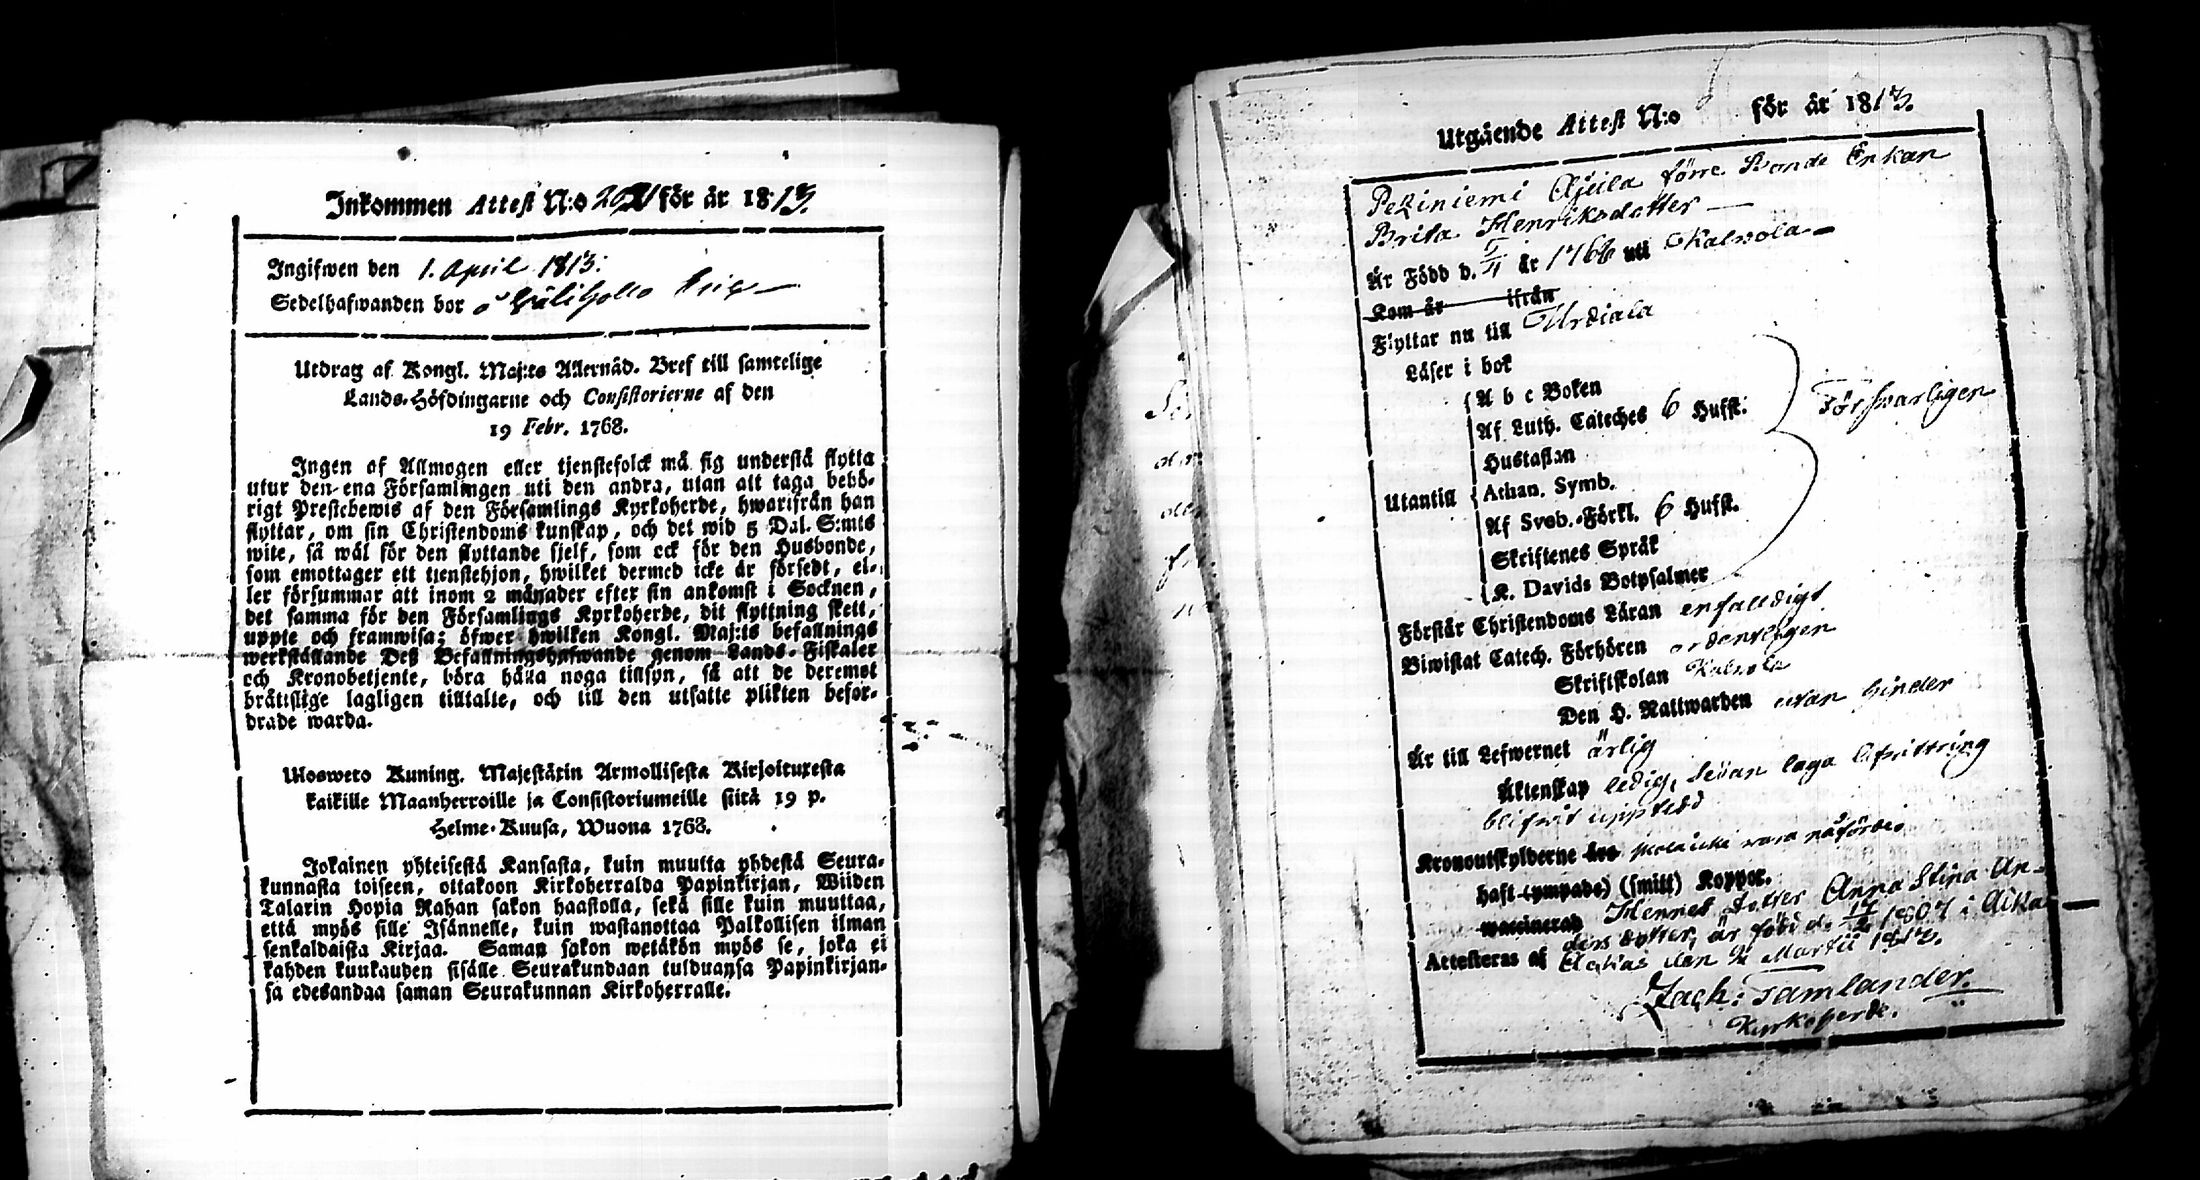 Inkommen Attest N:o för år 1813.
Ingifwen den 1. April 1813.
Sedelhafwanden bor å
Utdrag af Kongl. Maj:ts Allernåd. Bref till samtelige
Lands-Höfdingarne och Consistorierne af den
19 Febr. 1768.
Ingen af Allmogen eller tjenstefolck må sig understå flytta
utur den ena Församlingen uti den andra, utan att taga behö-
rigt Prestebewis af den Församlings Kyrkoherde, hwarifrån han
flyttar, om sin Christendoms kunskap, och det wid 5 Dal. S:mts
wite, så wäl för den flyttande sjelf, som ock för den Husbonde,
som emottager ett tienstehjon, hwilket dermed icke är försedt, el-
ler försummar att inom 2 månader efter sin ankomst i Socknen,
det samma för den Församlings Kyrkoherde, dit flyttning skett,
uppte och framwisa; öfwer hwilken Kongl. Maj:ts befallnings
werkställande Deß Befallningshafwande genom Lands-Fiskaler
och Kronobetjente, böra hålla noga tillsyn, så att de deremot
bråtslige lagligen tilltalte, och till den utsatte plikten befor-
drade warda.
Ulosweto Kuning. Majestätin Armollisesta Kirjoituxesta
kaikille Maanherroille ja Consistoriumeille siitä 19 p.
Helme-Kuusa, Wuona 1768.
Jokainen yhteisestä Kansasta, kuin muutta yhdestä Seura-
kunnasta toiseen, ottakoon Kirkoherralda Papinkirjan, Wiiden
Talarin Hopia Rahan sakon haastolla, sekä sille kuin muuttaa,
että myös sille Isännelle, kuin wastanottaa Palkollisen ilman
senkaldaista Kirjaa. Saman sakon wetäkön myös se, joka ei
kahden kuukauden sisälle Seurakundaan tulduansa Papinkirjan-
sa edesandaa saman Seurakunnan Kirkoherralle.
Utgående Attest N:o för år 1813.
Pekiniemi förre Bonde Enkan
Brita Henriksdotter
Är Född d. år 1766 uti Kalvola
Kom år ifrån
Flyttar nu till Urdiala
Läser i bok
A b c Boken
Af Luth. Cateches 6 Hufst. Försvarligen
Hustaflan
Utantill Athan. Symb.
Af Sveb. Förkl. 6 Hufst.
Skriftenes Språk
K. Davids Botpsalmer
Förstår Christendoms Läran enfalldigt
Biwistat Catech. Förhören ordentligen
Skriftskolan Kalvola
Den H. Nattwarden utan hinder
Är till Lefwernet ärlig
Äktenskap ledig, sedan laga
blifvit
Kronoutskylderne äro
haft (ympade) (smitt) Koppor.
waccinerad Hennes dotter Anna Stina An-
ders dotter, är född d. 1807 i
Attesteras af den Martii 1813.
Zach: Tamlander.
Kyrkoherde.